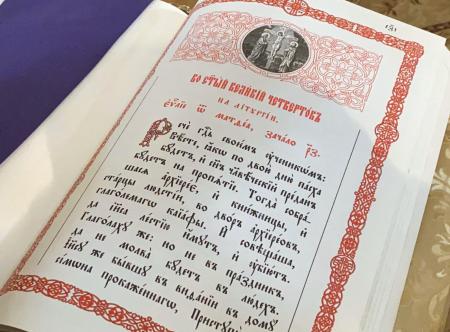 Во ст҃ы́й вели́кїй четверто́къ
НА ЛІТꙊРГІИ.
Еѵⷢ҇лїе ѿ матѳе́а, зача́ло р҃з.
Речѐ гдⷭ҇ь свои̑мъ ᲂу҆ченикѡ́мъ:
вѣ́сте, ꙗ҆́кѡ по двою̀ дні́й па́сха
бꙋ́детъ, и҆ сн҃ъ чл҃вѣ́ческїй пре́данъ
бꙋ́детъ на пропѧ́тїе. Тогда̀ собра́-
шасѧ а҆рхїере́є, и҆ кни́жницы, и҆
ста́рцы людсті́и, во дво́ръ а҆рхїере́ѡвъ,
глаго́лемагѡ каїа́фы. И҆ совѣща́ша,
да і҆и҃са ле́стїю и҆́мꙋтъ, и҆ ᲂу҆бїю́тъ.
Глаго́лахꙋ же: но не въ пра́здникъ,
да не молва̀ бꙋ́детъ въ лю́дехъ.
І҆и҃сꙋ же бы́вшꙋ въ виѳа́нїи въ домꙋ̀
сі́мѡна прокаже́ннагѡ,